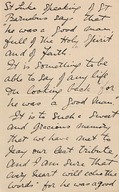 St Luke speaking of St
Barnabas says that
"he was a good man,
full of the Holy Spirit
and of Faith.
It is something to be
able to say of any life
On looking back for
he was a Good Man
It is to such a sweet
and gracious memory
that we have met to
pay our last tribute
And I am sure that
every heart will echo the
words "for he was a good